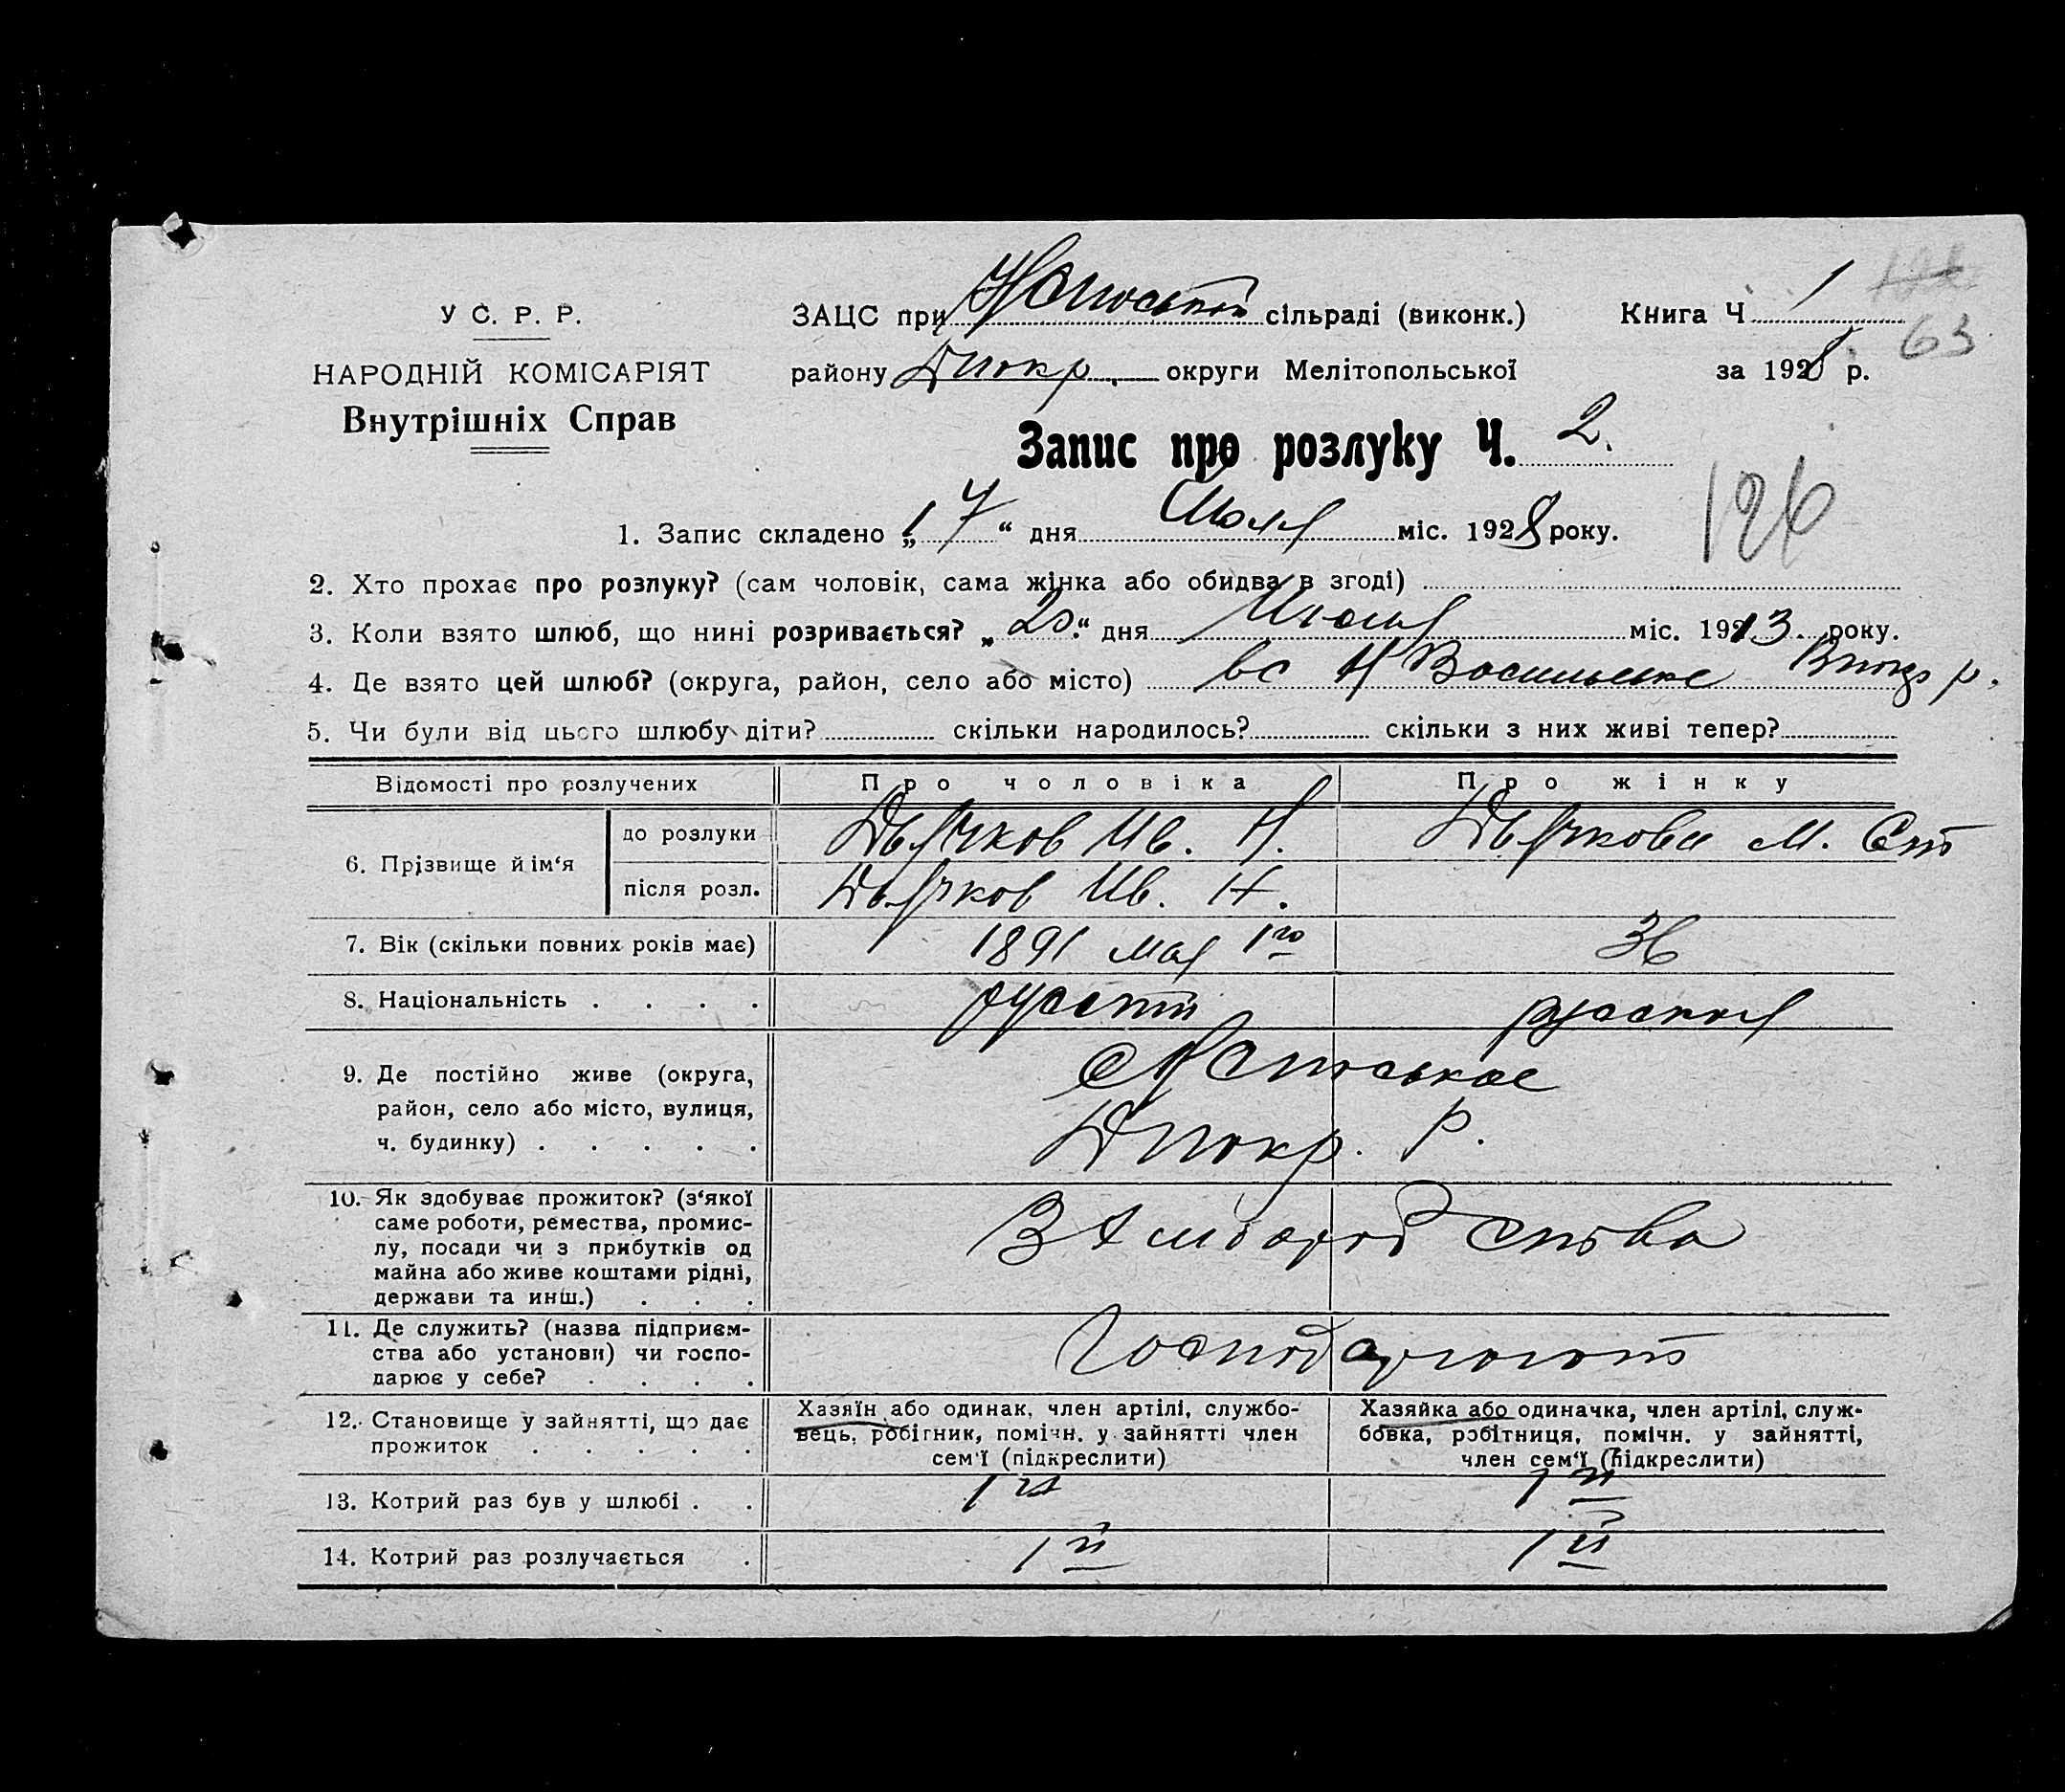 У С. Р. Р.
НАРОДНІЙ КОМІСАРІЯТ
Внутрішніх Справ
ЗАЦС при сільраді (виконк.)
району округи Мелітопольської
Книга Ч 1
63
за 1928 р.
Запис про розлуку Ч. 2.
126
1. Запис складено „17“ дня Июля міс. 1928 року.
2. Хто прохає про розлуку? (сам чоловік, сама жінка або обидва в згоді)
3. Коли взято шлюб, що нині розривається? „20“ дня міс. 1913 року.
4. Де взято цей шлюб? (округа, район, село або місто) вс Н Васильевке р.
5. Чи були від цього шлюбу діти? скільки народилось? скільки з них живі тепер?
Відомості про розлучених Про чоловіка Про жінку
6. Прізвище й ім‘я
до розлуки Дьячков Ив. Н. Дьячкова М.
після розл. Дьячков Ив. Н.
7. Вік (скільки повних років має) 1891 мая 1го 36
8. Національність . . . . русская
9. Де постійно живе (округа, район, село або місто, вулиця, ч. будинку) . . . . . Р.
10. Як здобуває прожиток? (з‘якої
саме роботи, ремества, промис-
лу, посади чи з прибутків од
майна або живе коштами рідні,
держави та инш.) . . .
11. Де служить? (назва підприєм-
ства або установи) чи госпо-
дарює у себе? . . . .
12. Становище у зайнятті, що дає
прожиток . . . . .
Хазяїн або одинак, член артілі, службо-
вець, робітник, помічн. у зайнятті член
сем‘ї (підкреслити)
Хазяйка або одиначка, член артілі, служ-
бовка, робітниця, помічн. у зайнятті,
член сем‘ї (підкреслити)
13. Котрий раз був у шлюбі . . 1й 1й
14. Котрий раз розлучається . 1й 1й